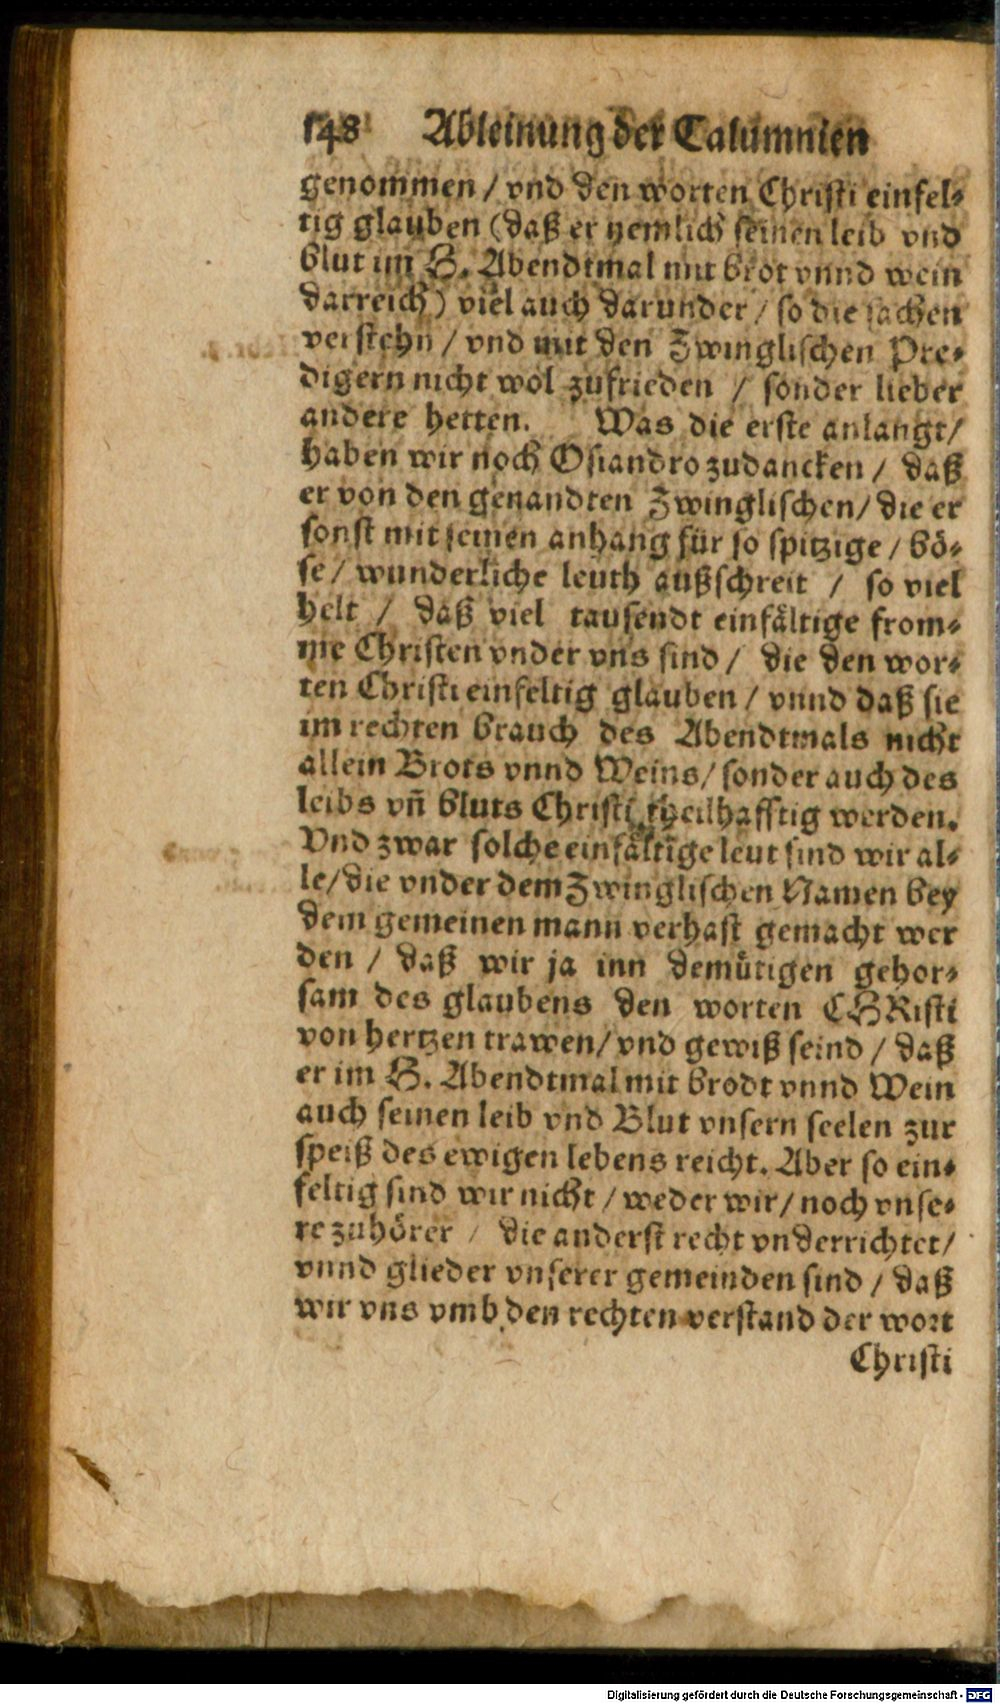 148 Ableinung der Calumnien
genommen / vnd den worten Christi einfel-
tig glauben (daß er nemlich seinen leib vnd
blut im H. Abendtmal mit brot vnnd wein
darreich) viel auch darunder / so die sachen
verstehn / vnd mit den Zwinglischen Pre-
digern nicht wol zufrieden / sonder lieber
andere hetten. Was die erste anlangt/
haben wir noch Osiandro zudancken / daß
er von den genandten Zwinglischen/ die er
sonst mit seinen anhang für so spitzige / bö-
se / wunderliche leuth außschreit / so viel
helt / daß viel tausendt einfältige from-
me Christen vnder vns sind / die den wor-
ten Christi einfeltig glauben / vnnd daß sie
im rechten brauch des Abendtmals nicht
allein Brots vnnd Weins/ sonder auch des
leibs vñ bluts Christi theilhafftig werden.
Vnd zwar solche einfältige leut sind wir al-
le/die vnder dem Zwinglischen Namen bey
dem gemeinen mann verhast gemacht wer
den / daß wir ja inn demütigen gehor-
sam des glaubens den worten CHRisti
von hertzen trawen/ vnd gewiß seind / daß
er im H. Abendtmal mit brodt vnnd Wein
auch seinen leib vnd Blut vnsern seelen zur
speiß des ewigen lebens reicht. Aber so ein-
feltig sind wir nicht / weder wir/ noch vnse-
re zuhörer / die anderst recht vnderrichtet/
vnnd glieder vnserer gemeinden sind / daß
wir vns vmb den rechten verstand der wort
Christi
Digitalisierung gefördert durch die Deutsche Forschungsgemeinschaft - DFG